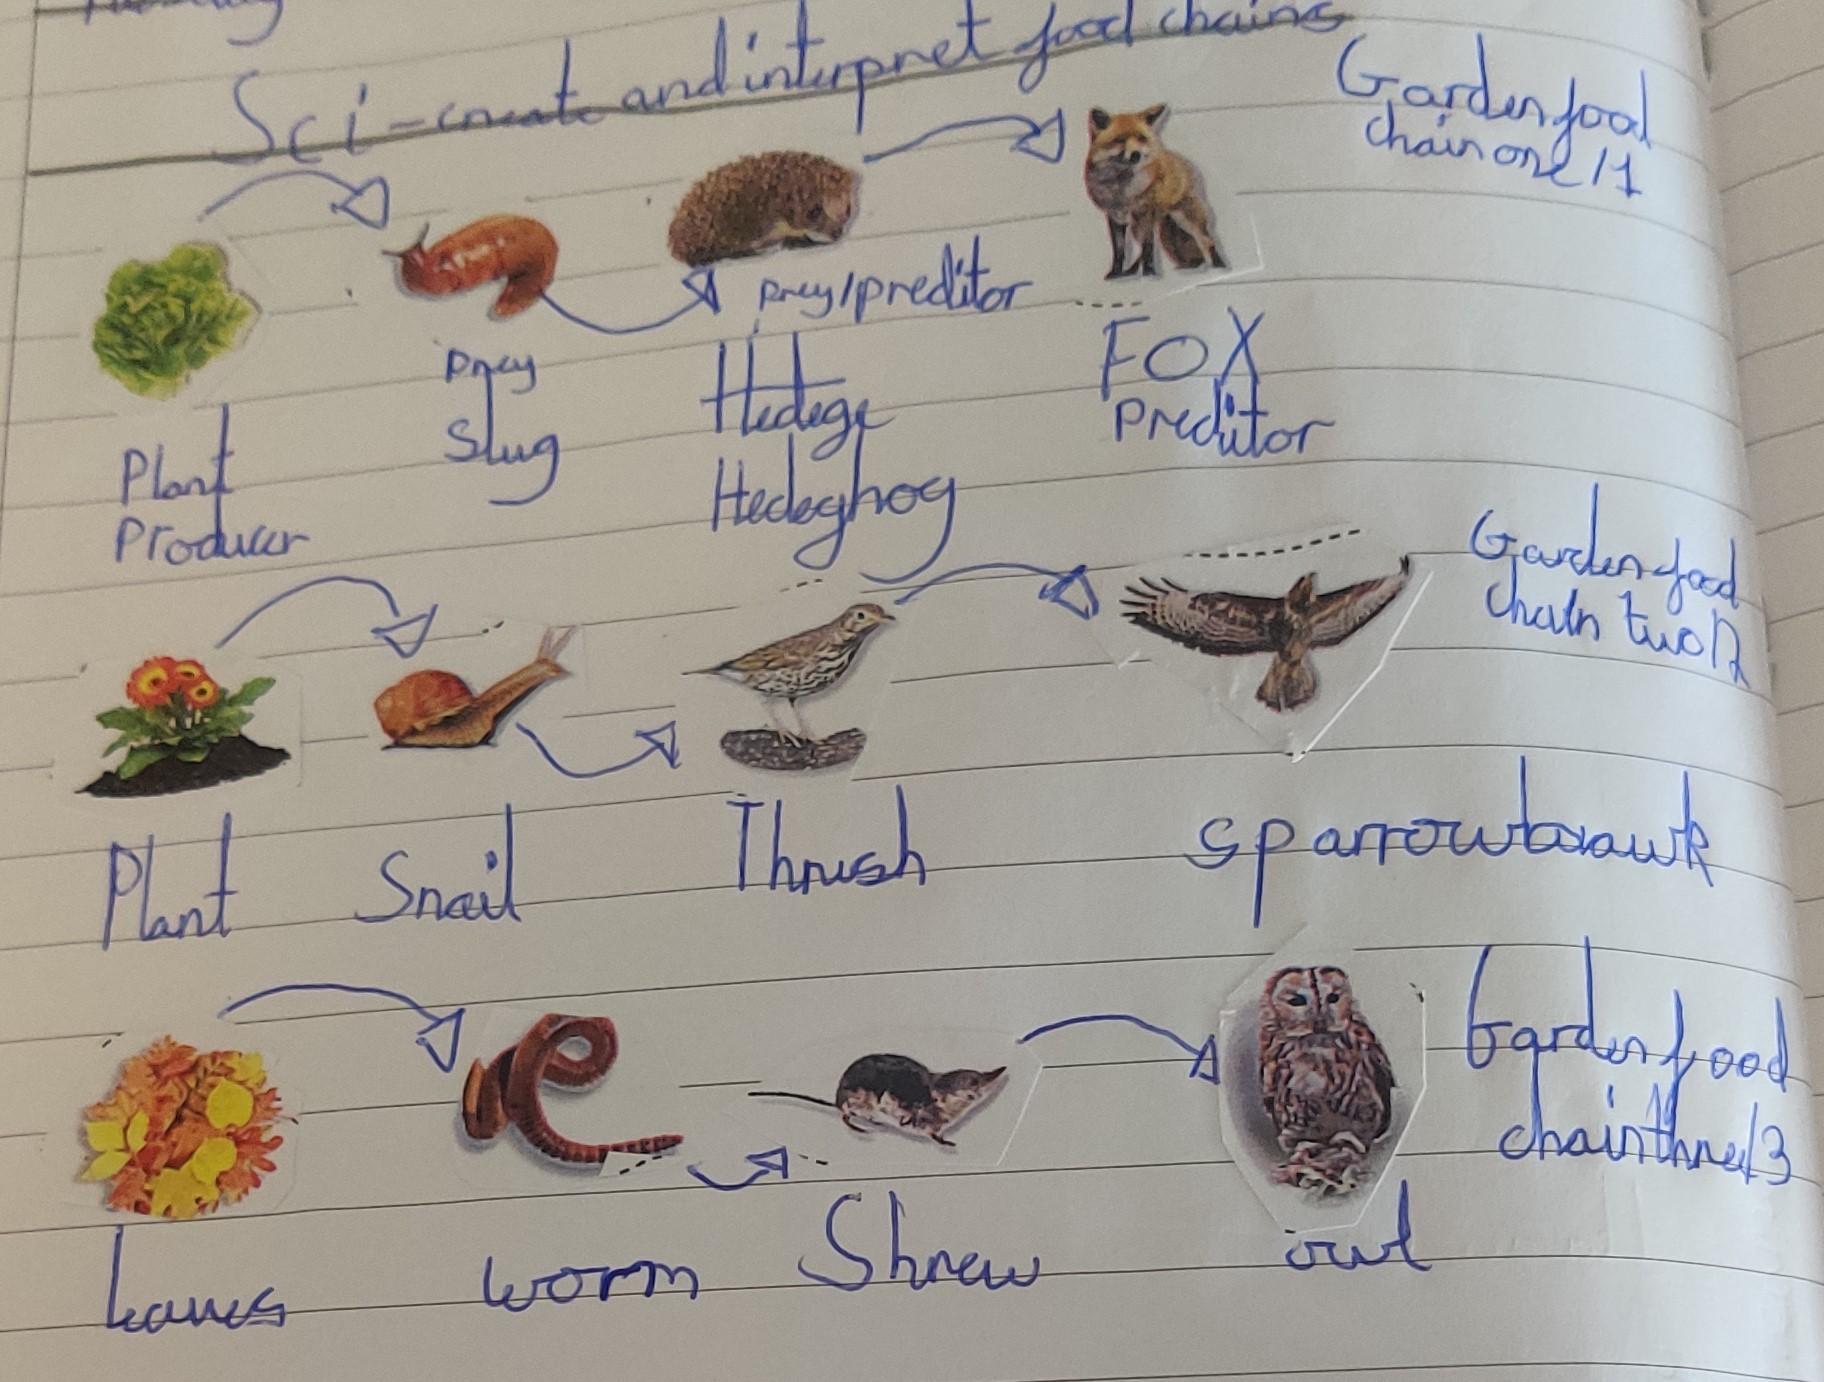 Sci-create and interpret food chains
Garden food
chain one/1
prey/preditor
Prey
Slug
Hedege
Hedeghog
FOX
Preditor
Plant
Producer
Garden food
chain two/2
Plant
Snail
Thrush
Garden food
chain three/3
leaves
worm
Shrew
owl